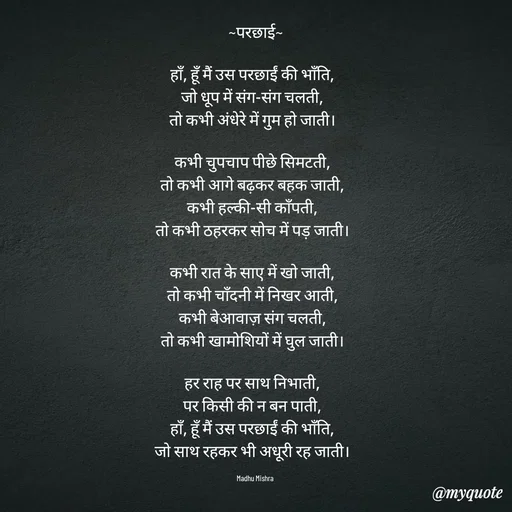 ~परछाई~
हाँ, हूँ मैं उस परछाईं की भाँति,
जो धूप में संग-संग चलती,
तो कभी अंधेरे में गुम हो जाती।
कभी चुपचाप पीछे सिमटती,
तो कभी आगे बढ़कर बहक जाती,
कभी हल्की-सी काँपती,
तो कभी ठहरकर सोच में पड़ जाती।
कभी रात के साए में खो जाती,
तो कभी चाँदनी में निखर आती,
कभी बेआवाज़ संग चलती,
तो कभी खामोशियों में घुल जाती।
हर राह पर साथ निभाती,
पर किसी की न बन पाती,
हाँ, हूँ मैं उस परछाईं की भाँति,
जो साथ रहकर भी अधूरी रह जाती।
Madhu Mishra
@myquote